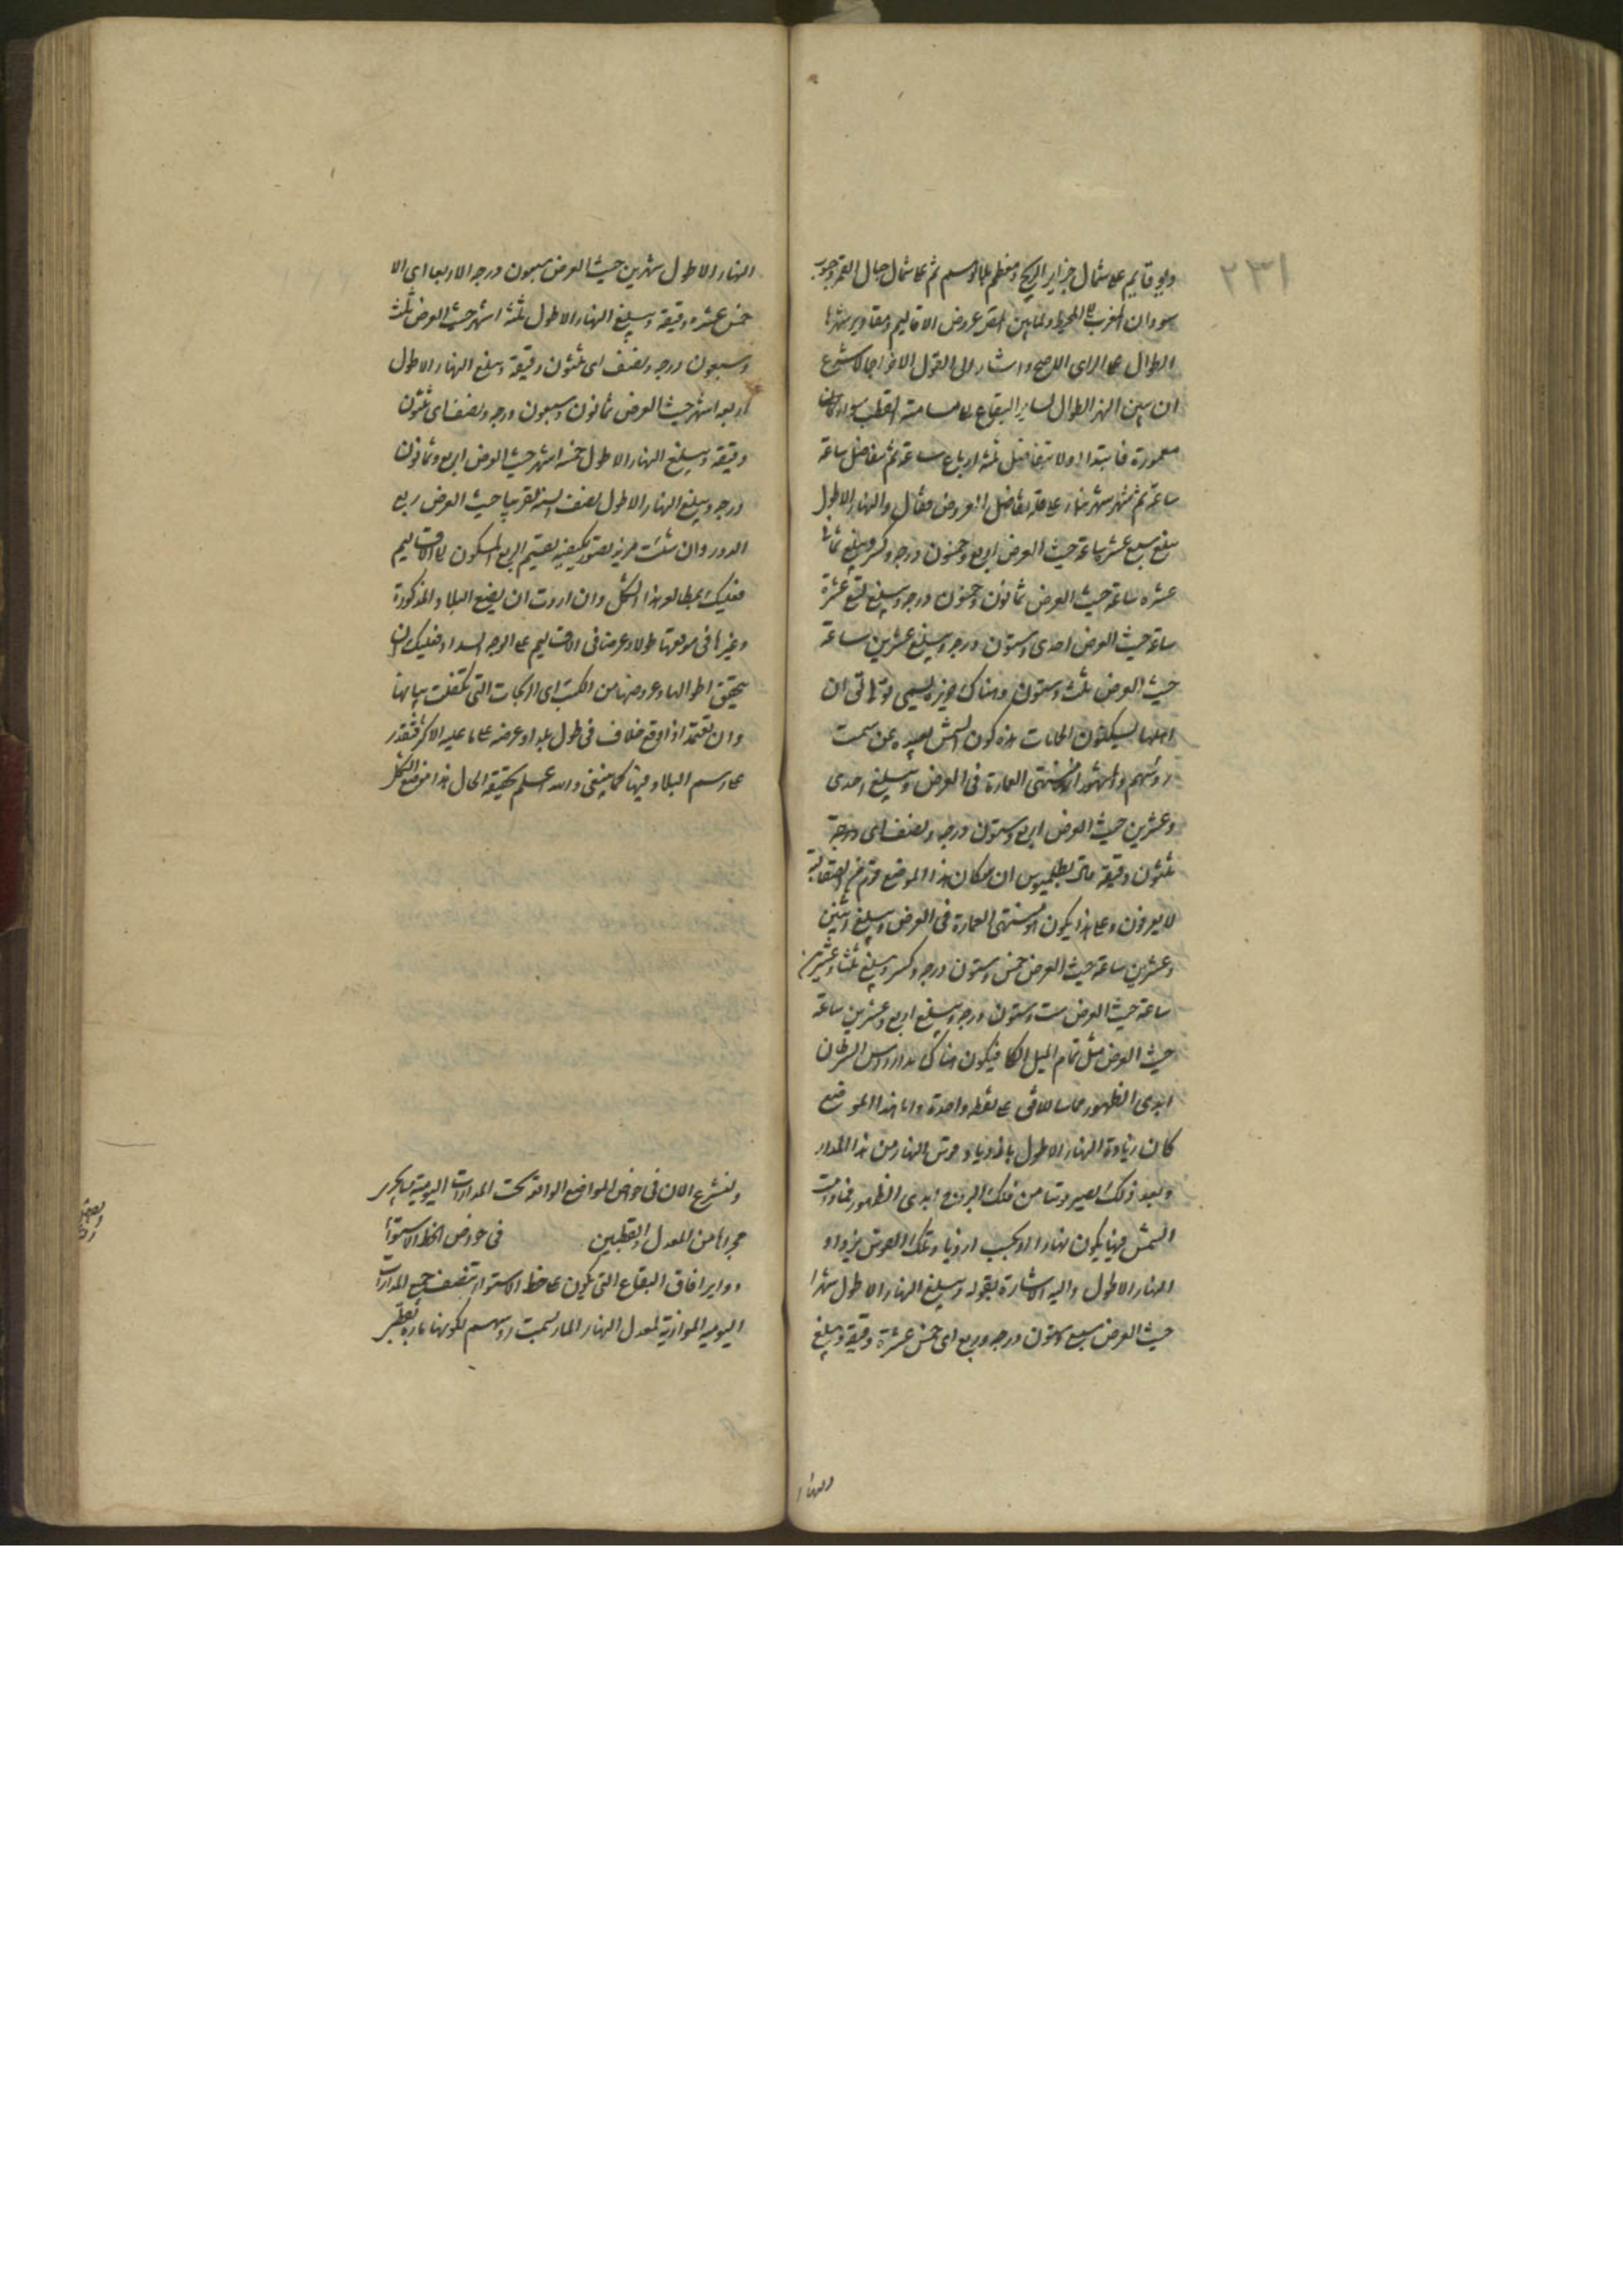 ٢٣١
على شمال جزاير الزنج ومعظم بلادهم ثم على شمال جبال القمر وجنوب
سودان المغرب الى المحيط ولما بين المص عروض الاقاليم ومقادير نهرها
الطوال على الراى الاصح واشار الى القول الاخر اجمالا شرع
ان يبين النهر الطوال لساير البقاع الى مسامتة القطب سواء كانت
معمورة فابتدا اولا بتفاضل ثلثة ارباع ساعة ثم بتفاضل ساعة
ساعة ثم شهر شهر بناء على قلة تفاضل العروض فقال والنهار الاطول
يبلغ سبع عشرة ساعة حيث العرض اربع وخمسون درجة وكسر ويبلغ ثمانى
عشره ساعة حيث العرض ثمانون وخمسون درجة ويبلغ تسع عشرة
ساعة حيث العرض احدى وستون درجة ويبلغ عشرين ساعة
حيث العرض ثلث وستون وهناك جزيرة تسمى تولى قالوا ان
اهلها يسكنون الحمامات مدة كون الشمس بعيدة عن سمت
رؤسهم والمشهور انه منتهى العمارة فى العرض ويبلغ احدى
وعشرين حيث العرض اربع وستون درجة ونصف اى درجة
ثلثون دقيقة قال بطلميوس ان سكان هذا الموضع قوم من الصقالبة
لا يعرفون وعلى هذا يكون هو منتهى العمارة فى العرض ويبلغ اثنين
وعشرين ساعة حيث العرض خمس وستون درجة وكسر ويبلغ ثلثا وعشرين
ساعة حيث العرض ست وستون درجة ويبلغ اربع وعشرين ساعة
حيث العرض مثل تمام الميل الكلى فيكون هناك مدار راس السرطان
ابدى الظهور مماسا للافق على نقطة واحدة والى هذا الموضع
كان زيادة النهار الاطول بازدياد قوس النهار من هذا المدار
وبعد ذلك يصير قوسا من فلك البروج ابدى الظهور فما دامت
الشمس فيها يكون نهارا وبحسب ازدياد تلك القوس يزداد
النهار الاطول واليه الاشارة بقوله ويبلغ النهار الاطول شهرا
حيث العرض سبع وستون درجة وربع اى خمس عشرة دقيقة ويبلغ
النهار
النهار الاطول شهرين حيث العرض سبعون درجة الا ربعا اى الا
خمس عشره دقيقة ويبلغ النهار الاطول ثلثة اشهر حيث العرض ثلث
وسبعون درجة ونصف اى ثلثون دقيقة ويبلغ النهار الاطول
اربعة اشهر حيث العرض ثمانون وسبعون درجة ونصف اى ثلثون
دقيقة ويبلغ النهار الاطول خمسة اشهر حيث العرض اربع وثمانون
درجة ويبلغ النهار الاطول نصف السنة تقريبا حيث العرض ربع
الدور وان شئت مزيد تصور كيفية تقسيم الربع المسكون الى الاقاليم
فعليك بمطالعة هذا الشكل وان اردت ان تضع البلاد المذكورة
وغيرها فى موقعها طولا وعرضا فى الاقاليم على الوجه السداد فعليك ان
تحقق اطوالها وعروضها من الكتب اى الزيجات التى تكفلت ببيانها
وان تعتمد اذا وقع خلاف فى طول بلد او عرضه على ما عليه الاكثر فتقدر
على رسم البلاد فيها كما ينبغى والله اعلم بحقيقة الحال هذا موضع الشكل
ولنشرع الان فى خواص المواضع الواقعة تحت المدارات اليومية
مجراها من المعدل والقطبين فى خواص الخط الاستواء
دواير افاق البقاع التى تكون على خط الاستواء تنصف جميع المدارات
اليومية الموازية لمعدل النهار المار بسمت رؤسهم لكونها مارة بقطبى